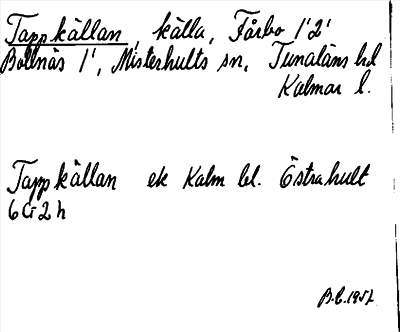 Tappkällan, källa, Fårbo 1'2'
Bollnäs 1', Misterhults sn, Tunaläns hd
Kalmar l.
Tappkällan ek Kalm bl. Östrahult
6G2h
B.C. 1957